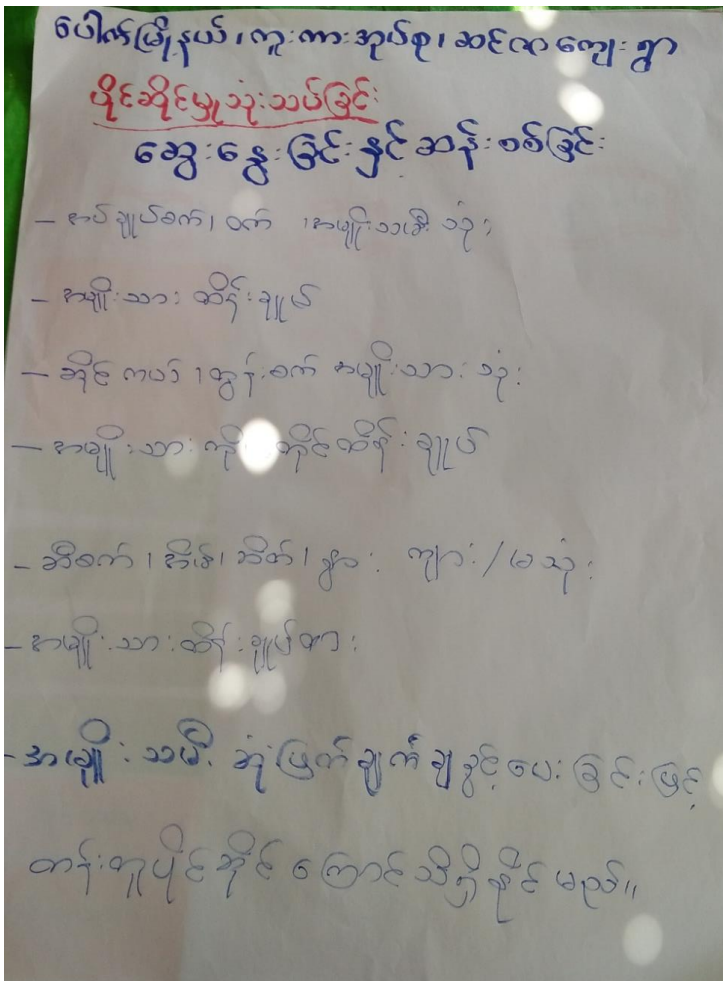 ပေါက်မြို့နယ်၊ကူးကားအုပ်စု၊ဆင်လကျေးရွာ
ပိုင်ဆိုင်မှုသုံးသပ်ခြင်း
ဆွေးနွေးခြင်းနှင့်ဆန်းစစ်ခြင်း
- အပ်ချုပ်စက်၊ ဝက် ၊အမျိုးသမီး သုံး
- အမျိုးသား ထိန်းချုပ်
- ဆိုင်ကယ် ၊ထွန်းစက် အမျိုးသား သုံး
- အမျိုးသား ကိုင်ထိန်းချုပ်
- ဆီစက်၊ အိမ်၊ ဆိတ်၊ နွား ကျား/မ သုံး
- အမျိုးသားထိန်းချုပ်ထား
- အမျိုးသမီး ဆုံးဖြတ်ချက်ချခွင့်ပေးခြင်းဖြင့်
တန်းတူပိုင်ဆိုင်ကြောင်သိရှိနိုင်မည်။